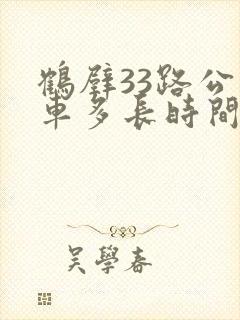 鶴壁33路公
車多長時間
吳學春